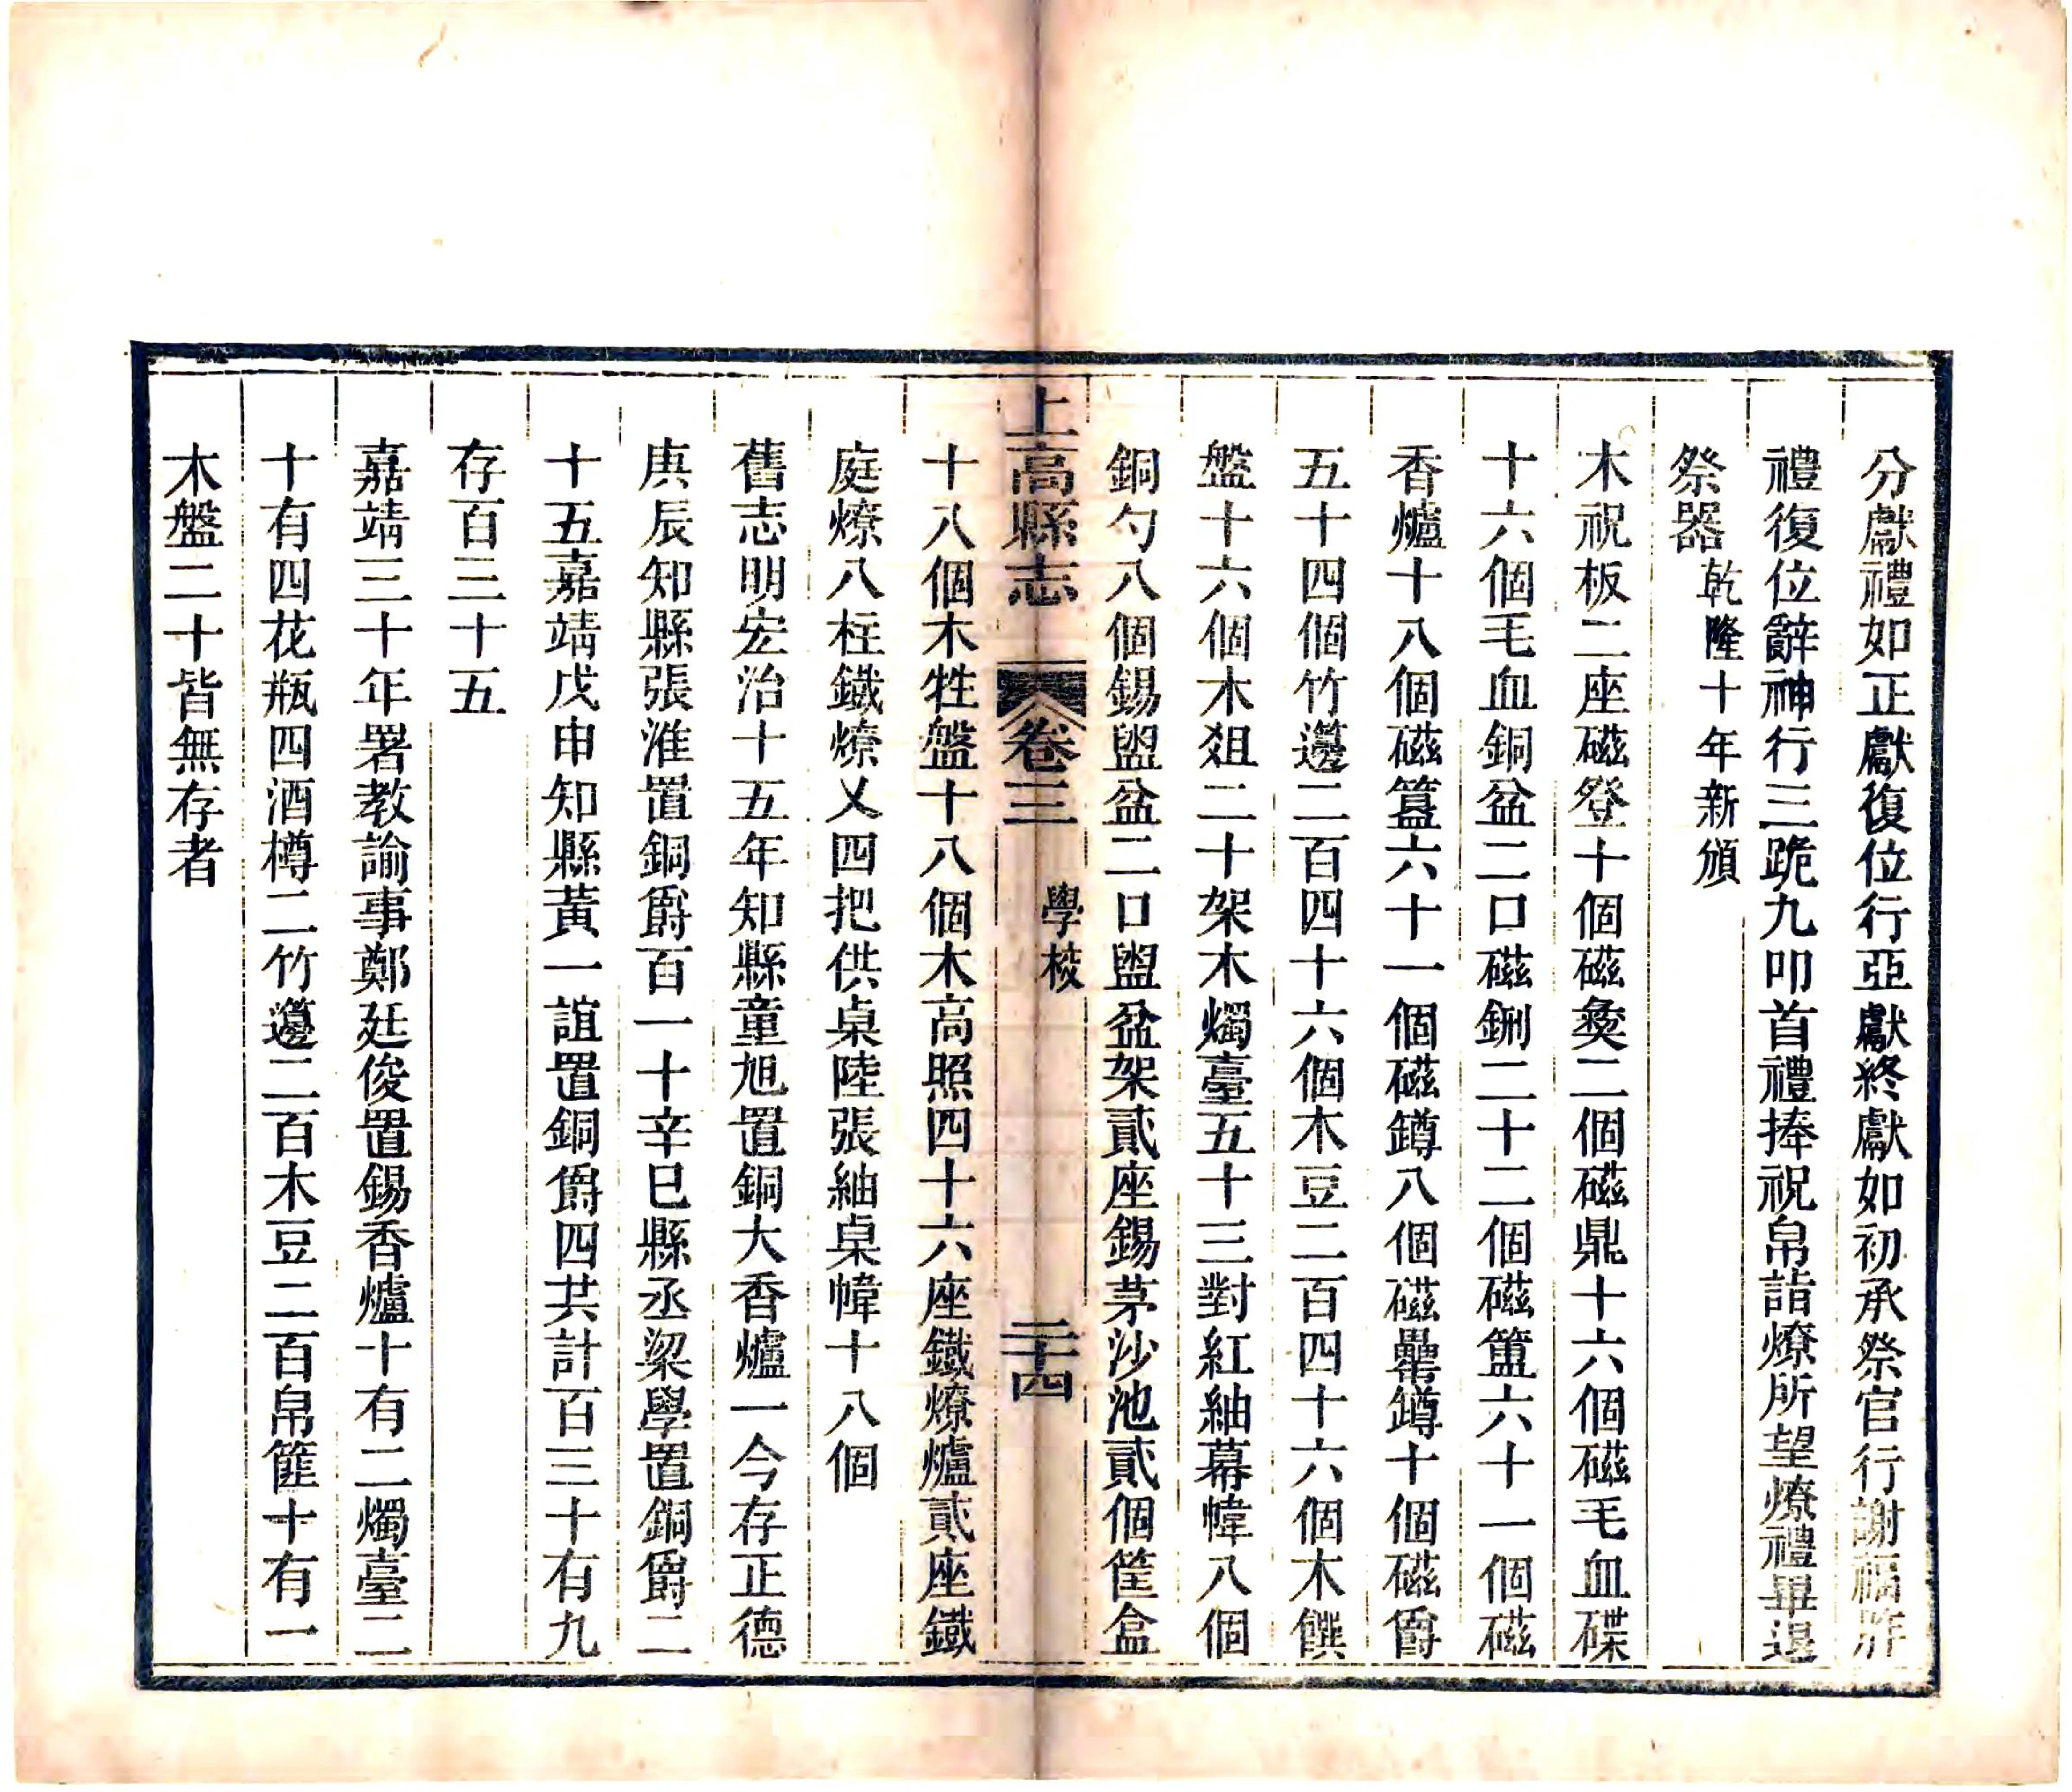 分獻禮如正獻復位行亞獻終獻如初承祭官行謝福胙
禮復位辭神行三跪九叩首禮捧祝帛詣燎所望燎禮畢退
祭器乾隆十年新頒
木祝板二座磁登十個磁彝二個磁鼎十六個磁毛血碟
十六個毛血銅盆二口磁鉶二十二個磁簠六十一個磁
香爐十八個磁簋六十一個磁罇八個磁罍罇十個磁爵
五十四個竹籩二百四十六個木豆二百四十六個木饌
盤十六個木爼二十架木燭臺五十三對紅紬幕幃八個
銅勺八個錫盥盆二口盥盆架貳座錫茅沙池貳個筐盒
上高縣志 卷三 學校 二十四
十八個木牲盤十八個木高照四十六座鐵燎爐貳座鐵
庭燎八柱鐵燎乂四把供桌陸張紬桌幃十八個
舊志明宏治十五年知縣童旭置銅大香爐一今存正德
庚辰知縣張淮置銅爵百一十辛巳縣丞梁學置銅爵二
十五嘉靖戊申知縣黃一誼置銅爵四共計百三十有九
存百三十五
嘉靖三十年署教諭事鄭廷俊置錫香爐十有二燭臺二
十有四花瓶四酒樽二竹籩二百木豆二百帛篚十有一
木盤二十皆無存者